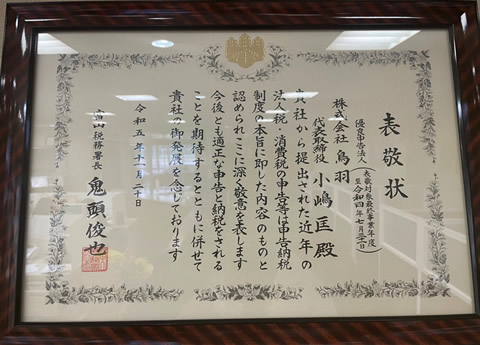 表敬状
優良申告法人
（表敬対象最終事業年度
至令和四年七月三十一日）
株式会社 鳥羽
代表取締役 小嶋 匡 殿
貴社から提出された近年の
法人税・消費税の申告等は申告納税
制度の本旨に即した内容のものと
認められここに深く敬意を表します
今後とも適正な申告と納税をされる
ことを期待するとともに併せて
貴社の御発展を念じております
令和五年十一月二十日
税務署長 鬼頭俊也